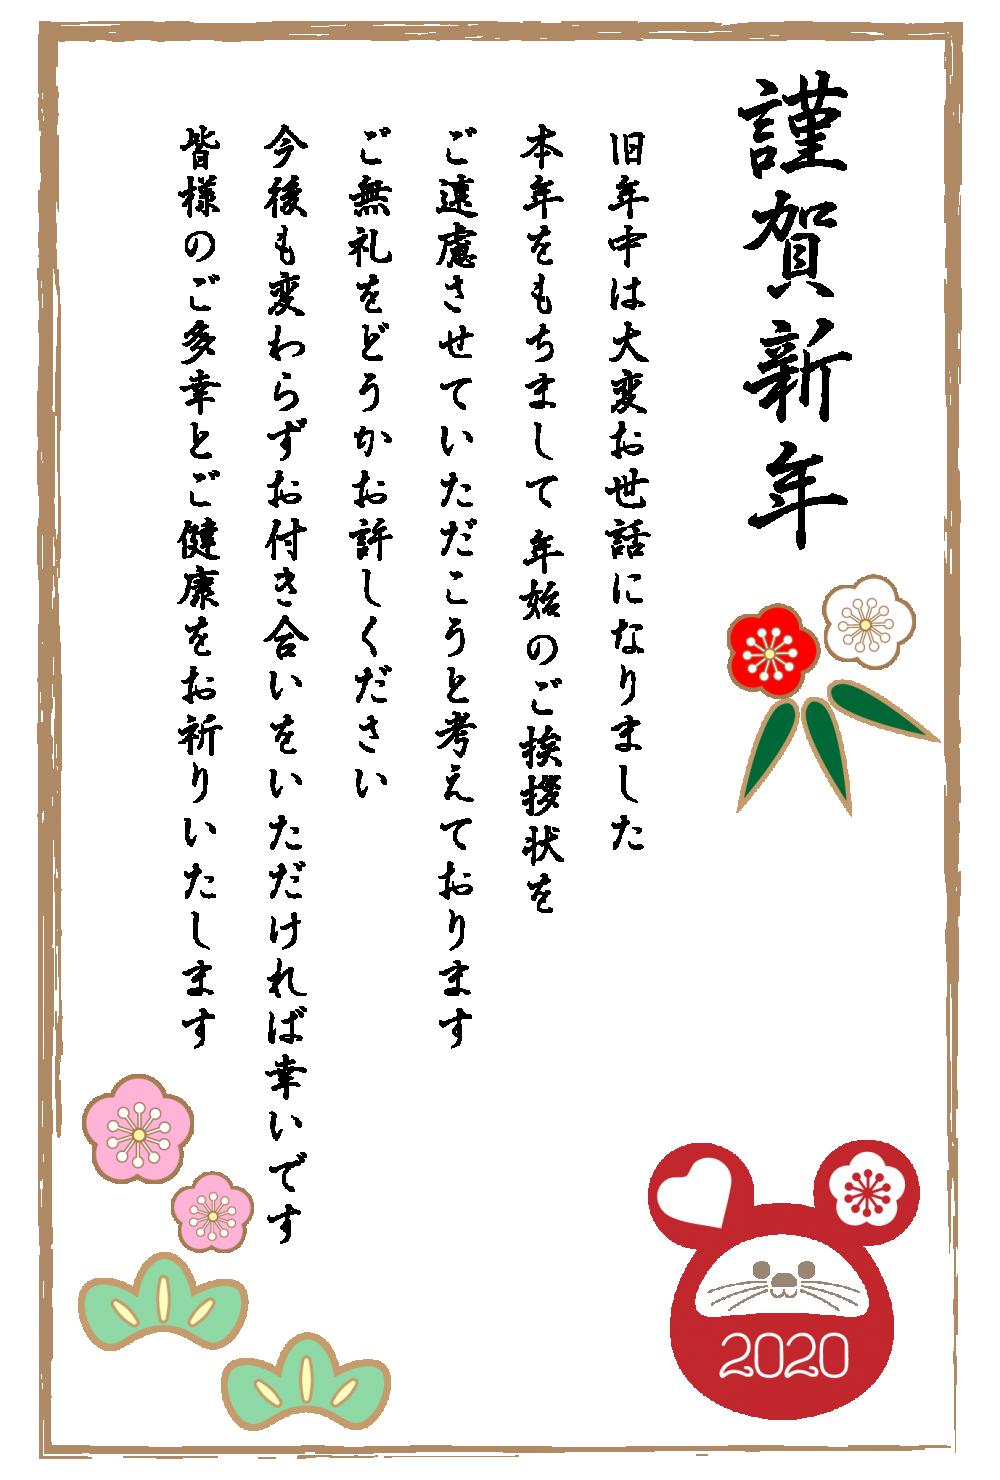 謹賀新年
旧年中は大変お世話になりました
本年をもちまして 年始のご挨拶状を
ご遠慮させていただこうと考えております
ご無礼をどうかお許しください
今後も変わらずお付き合いをいただければ幸いです
皆様のご多幸とご健康をお祈りいたします
2020